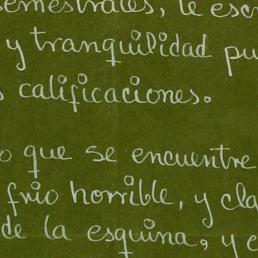 semestrales, le escr
y tranquilidad pu
s calificaciones.
o que se encuentre
frio horrible, y cla
de la esquina, y e